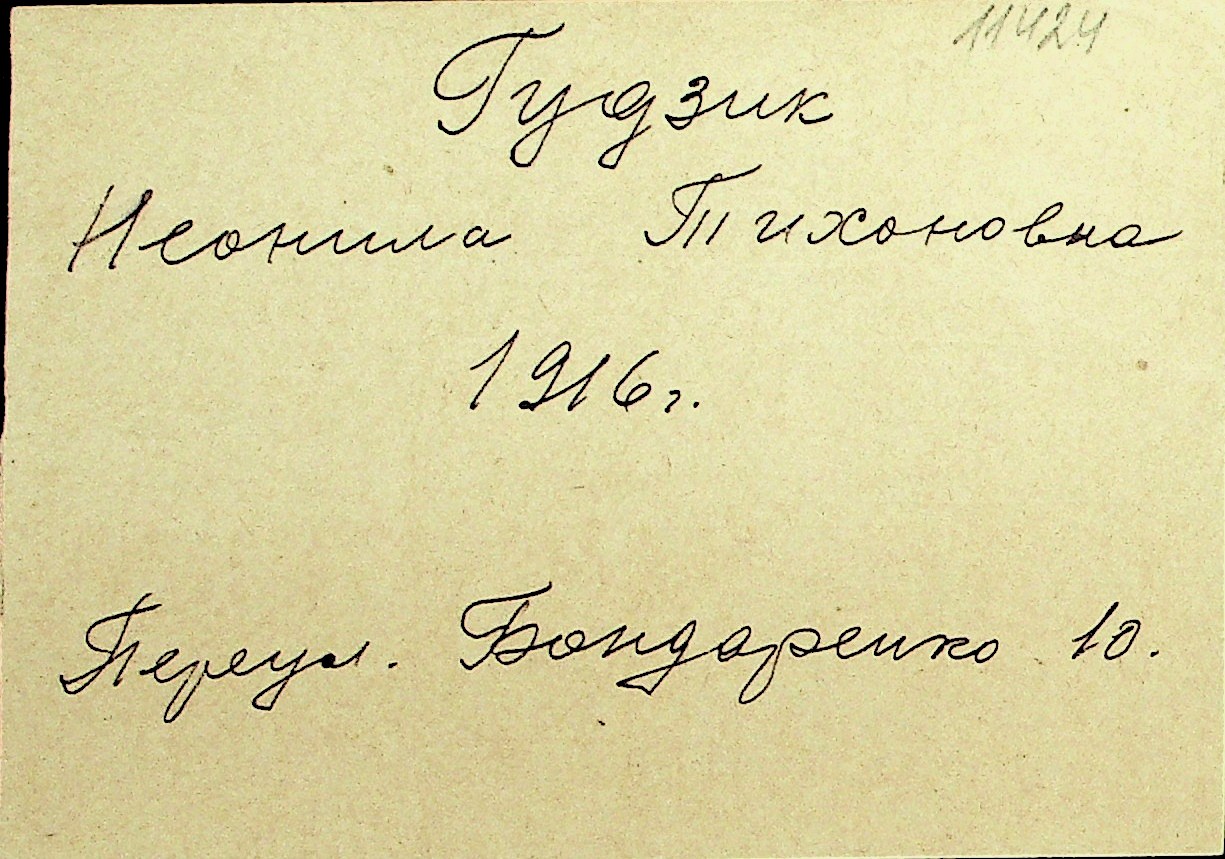 11424
Гудзик
Неонила Тихоновна
1916г.
Переул. Бондаренко 10.